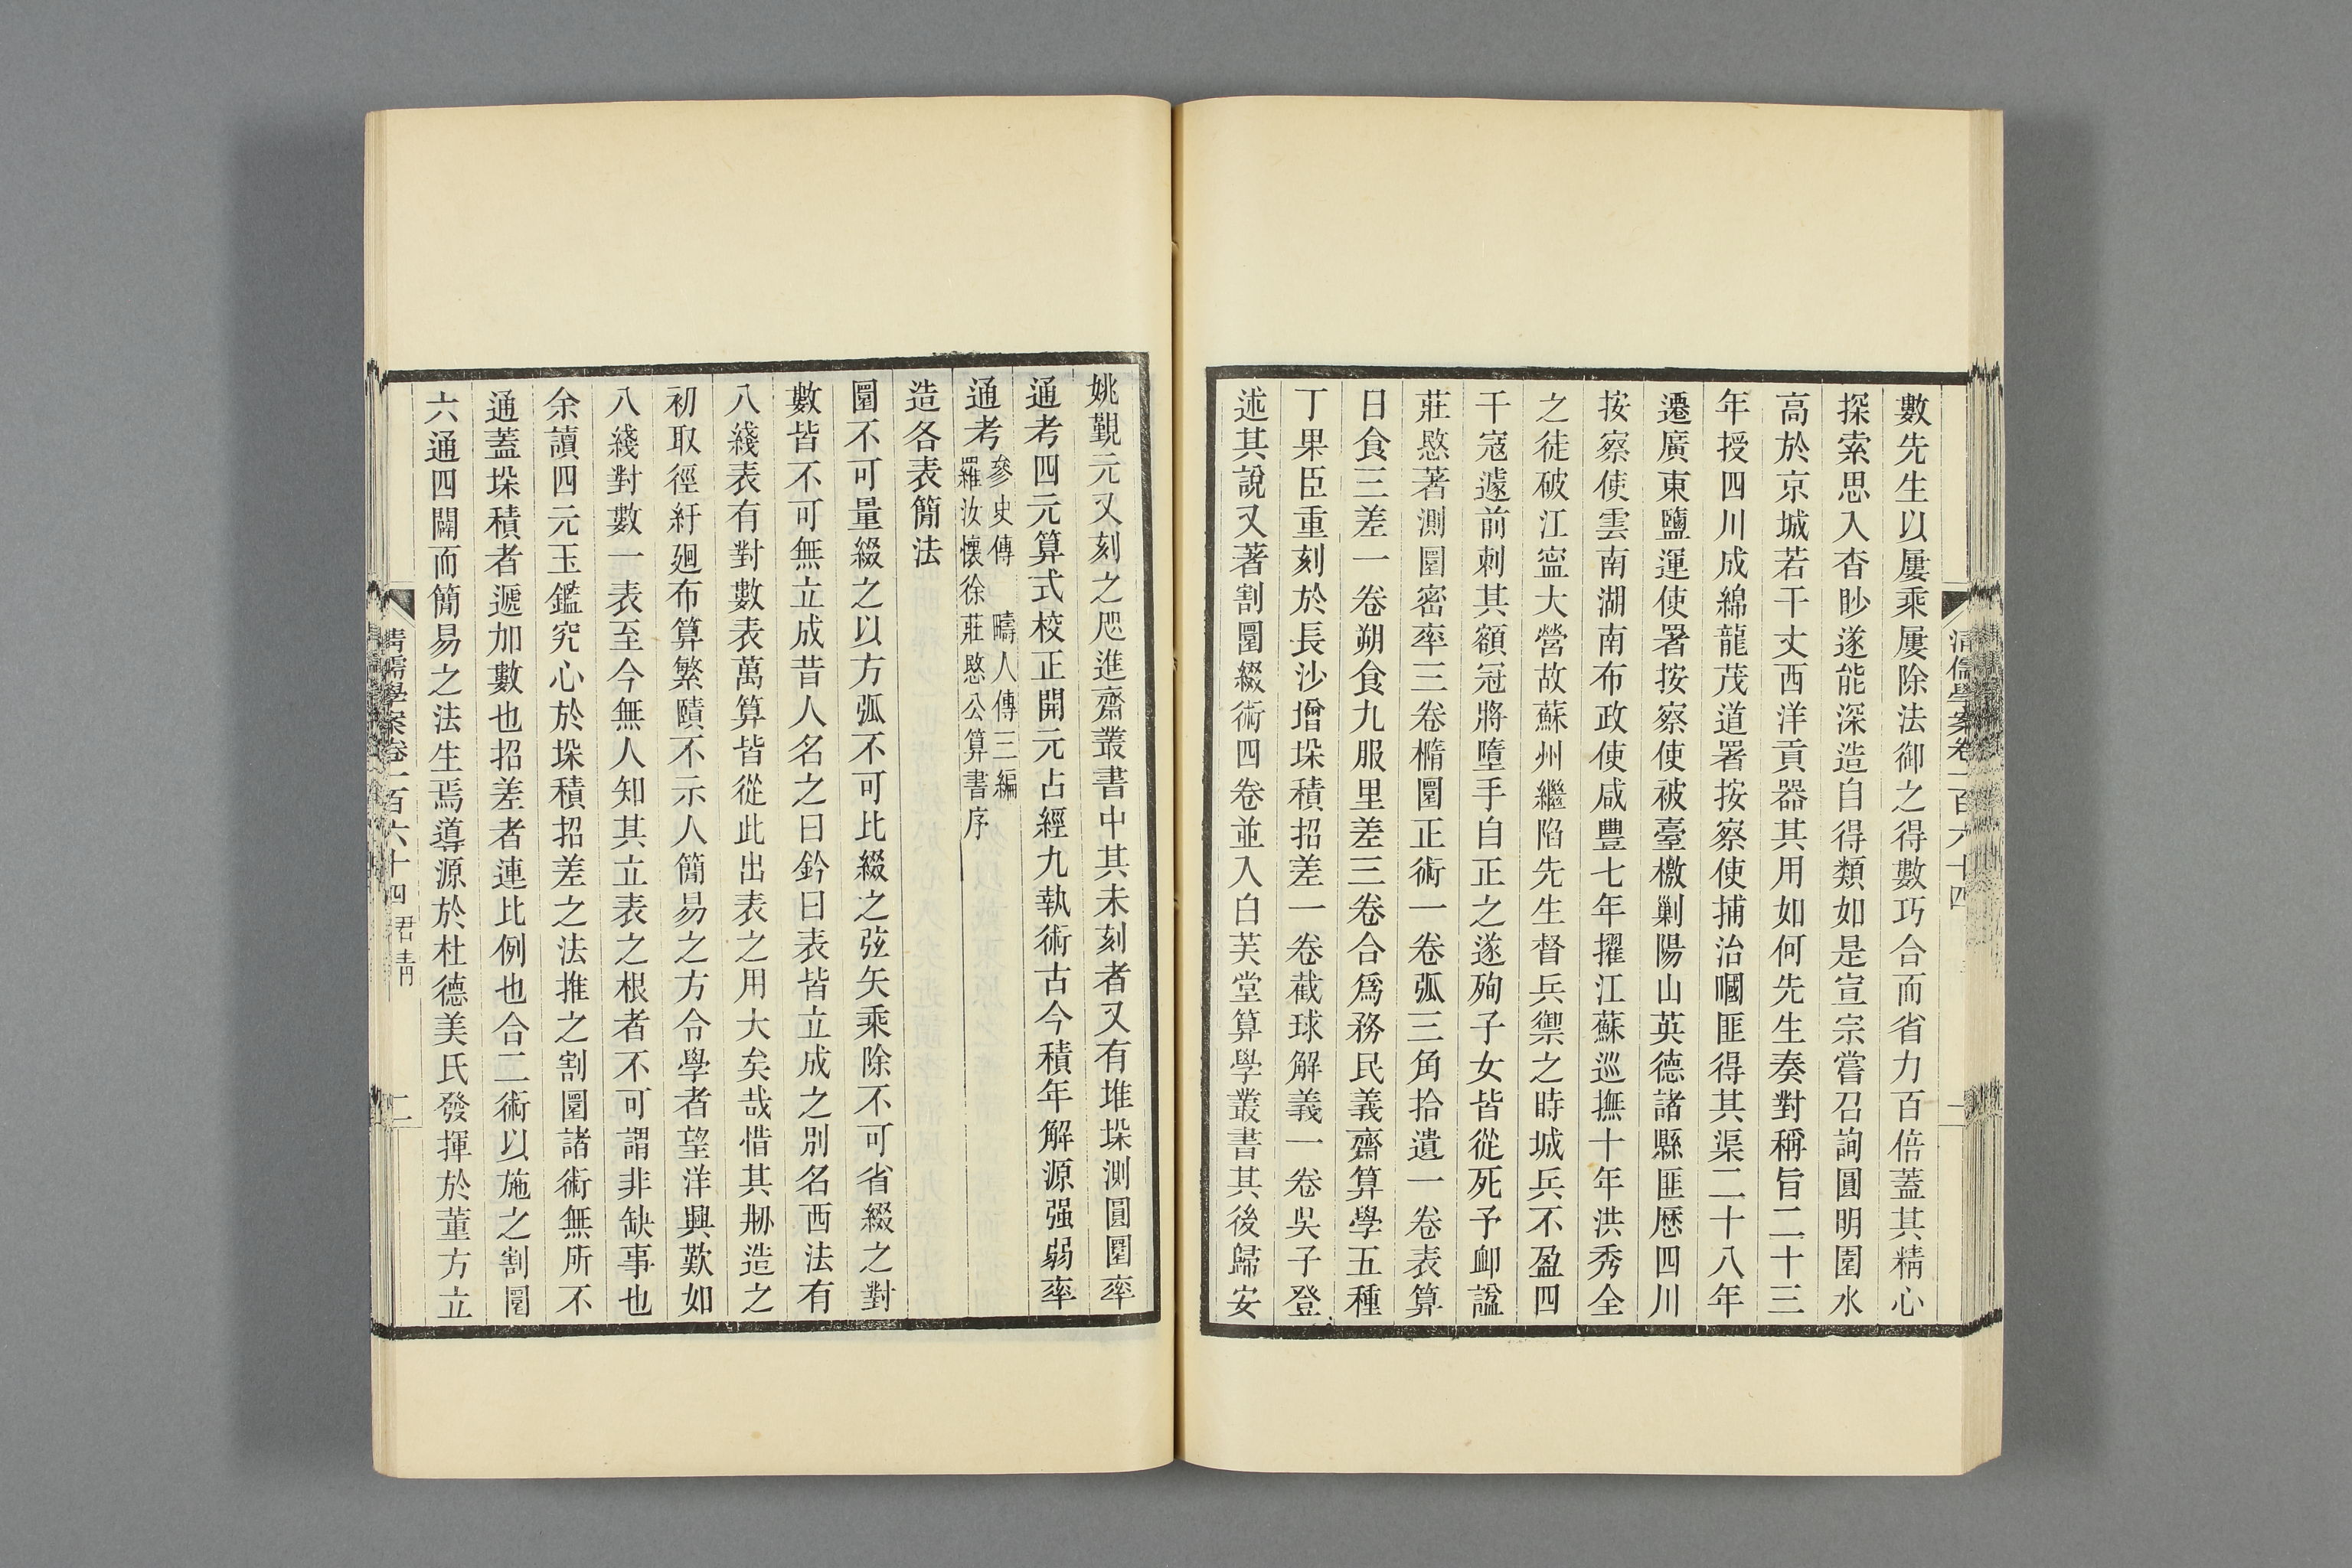 數先生以屢乘屢除法御之得數巧合而省力百倍蓋其精心
探索思入杳眇遂能深造自得類如是宣宗嘗召詢圓明園水
高於京城若干丈西洋貢器其用如何先生奏對稱旨二十三
年授四川成綿龍茂道署按察使捕治嘓匪得其渠二十八年
遷廣東鹽運使署按察使被臺檄剿陽山英德諸縣匪歷四川
按察使雲南湖南布政使咸豐七年擢江蘇巡撫十年洪秀全
之徒破江寍大營故蘇州繼陷先生督兵禦之時城兵不盈四
千寇遽前刺其額冠將墮手自正之遂殉子女皆從死予卹諡
莊愍著測圜密率三卷橢圜正術一卷弧三角拾遺一卷表算
日食三差一卷朔食九服里差三卷合爲務民義齋算學五種
丁果臣重刻於長沙增垛積招差一卷截球解義一卷吳子登
述其說又著割圜綴術四卷並入白芙堂算學叢書其後歸安
清儒學案卷一百六十四
姚覲元又刻之咫進齋叢書中其未刻者又有堆垛測圓圜率
通考四元算式校正開元占經九執術古今積年解源强弱率
通考參史傳 疇人傳三編
羅汝懷徐莊愍公算書序
造各表簡法
圜不可量綴之以方弧不可比綴之弦矢乘除不可省綴之對
數皆不可無立成昔人名之曰鈐曰表皆立成之別名西法有
八綫表有對數表萬算皆從此出表之用大矣哉惜其剏造之
初取徑紆廻布算繁賾不示人簡易之方令學者望洋興歎如
八綫對數一表至今無人知其立表之根者不可謂非缺事也
余讀四元玉鑑究心於垛積招差之法推之割圜諸術無所不
通蓋垛積者遞加數也招差者連比例也合二術以施之割圜
六通四闢而簡易之法生焉導源於杜德美氏發揮於董方立
清儒學案卷一百六十四 君青
二